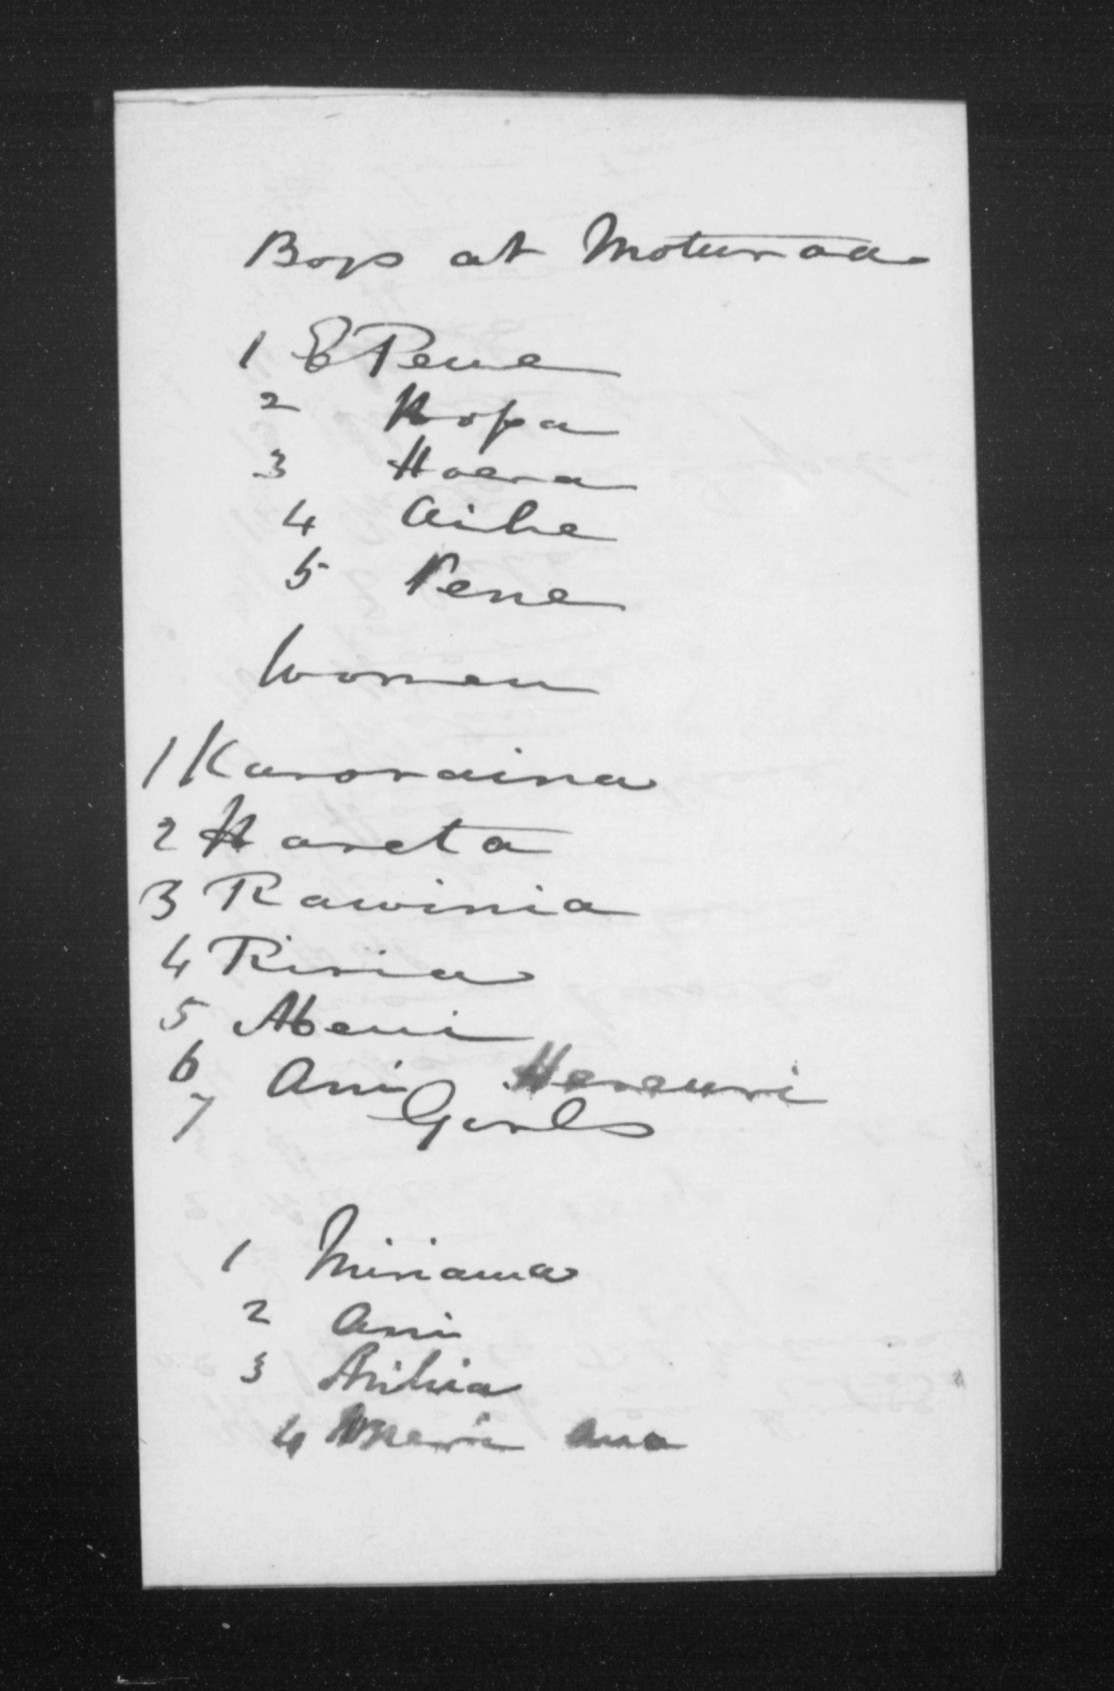 Boys at Moturoa
1 E Pene
2 Hopa
3 Hoera
4 Aihe
5 Pene
Women
1 Karoraina
2 Hareta
3 Rawinia
4 Riria
5 Abeni
6 Ani Herewri
7 Girls
1 Miriama
2 Ani
3 Arihia
4 Meri Ana